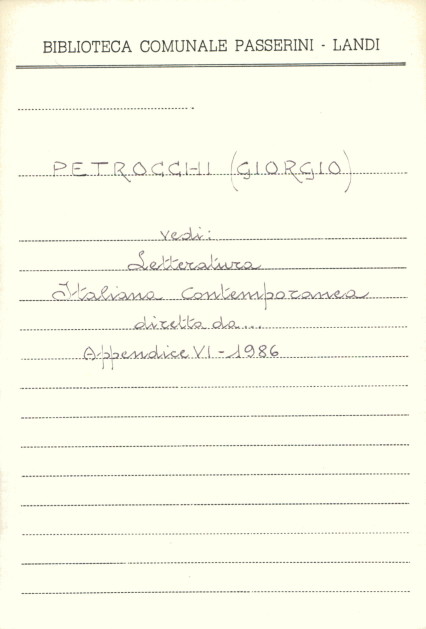 BIBLIOTECA COMUNALE PASSERINI - LANDI
PETROCCHI (GIORGIO)
vedi:
Letteratura
Italiana Contemporanea
diretta da...
Appendice VI - 1986